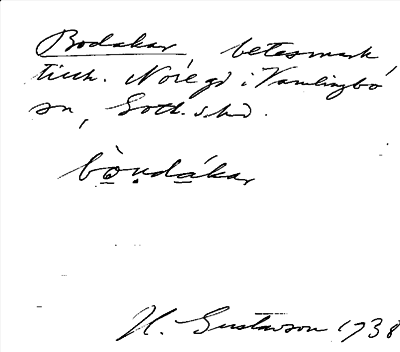 Bodakar betesmark,
tillh. Nore gd i Vamlingbo
sn, Gotl. s hd.
bòndákar
H. Gustavson 1938